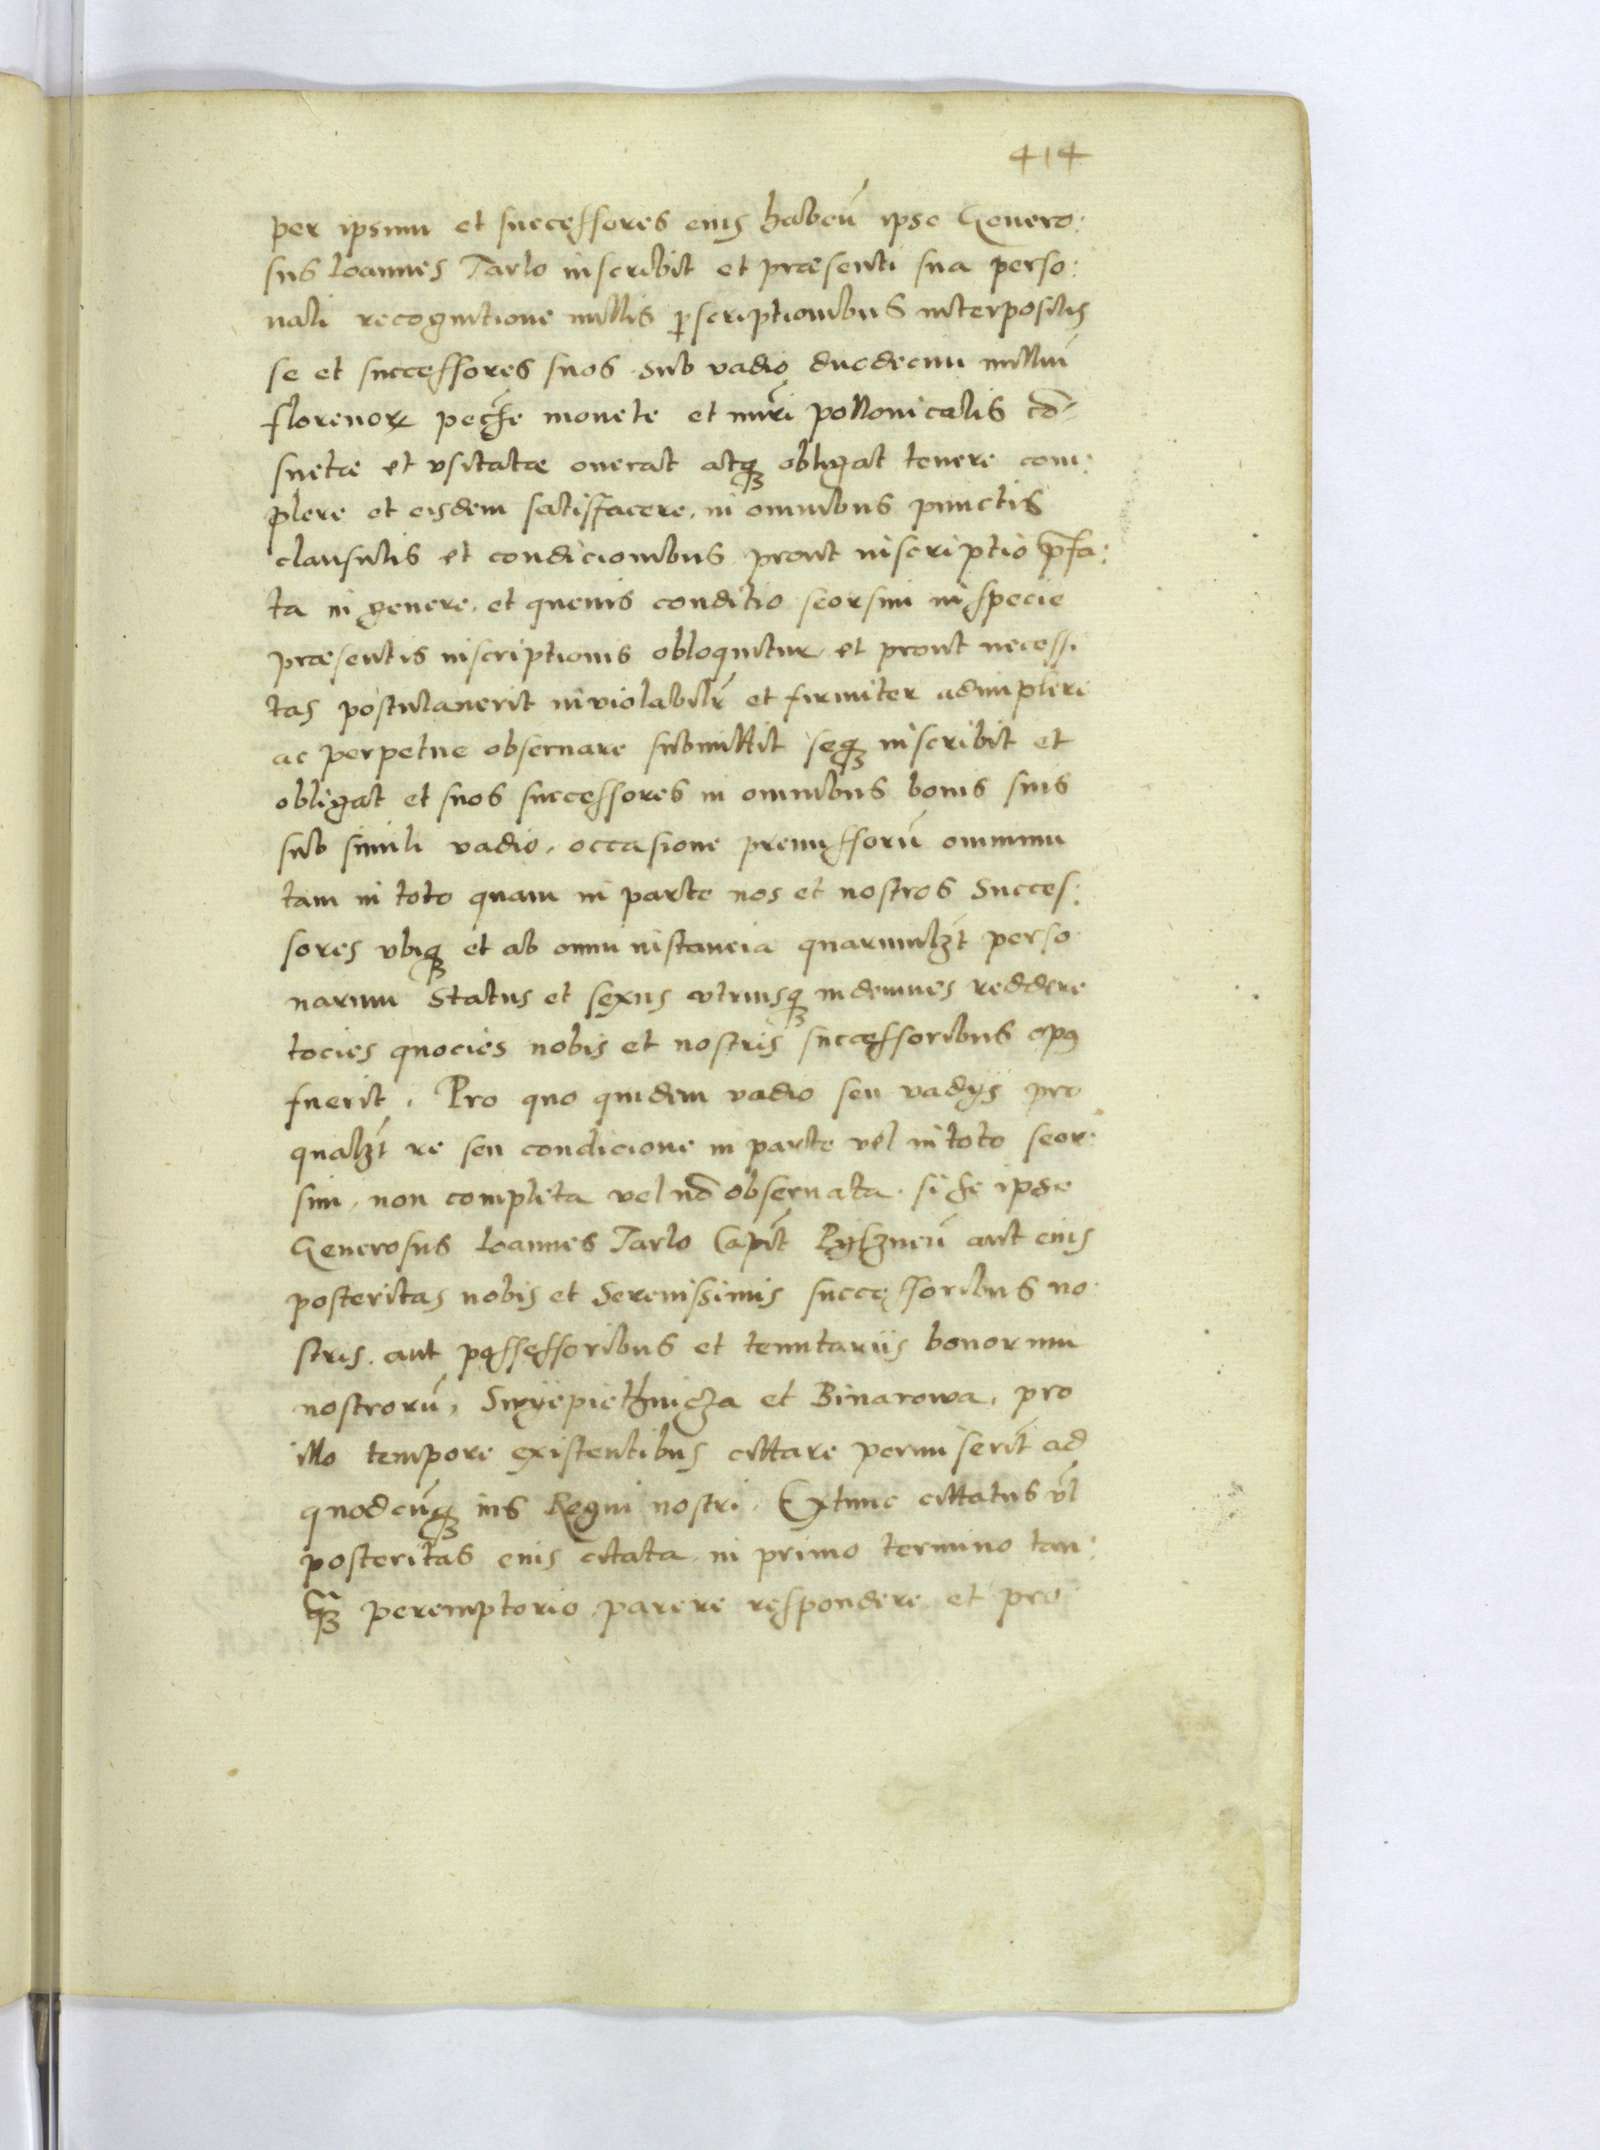 414
per ipsum et successores eius habeñ ipse Genero:
sus Ioannes Tarlo inscribit et præsenti sua perso:
nali recognitione nullis p̱scriptionibus interpositis
se et successores suos sub vadio duodecim milliũ
florenoꝝ pecu͂e monete et nu͂ri pollonicalis cō-
suetæ et vsitatæ onerat atqꝫ obligat tenere com:
plere et eisdem satisfacere, in omnibus punctis
clausulis et condicionibus prout inscriptio p̄fa:
ta in genere, et queuis conditio seorsim in specie
præsentis inscriptionis obloquitur et prout necessi
tas postulauerit inviolabilr̃ et firmiter adimplere
ac perpetue obseruare submittit seqꝫ inscribit et
obligat et suos successores in omnibus bonis suis
sub simili vadio, occasione premissorũ omnium
tam in toto quam in parte nos et nostros Succes:
sores vbiqꝫ et ab omni instancia quarumlꝫt perso
narum Status et sexus vtriusqꝫ indemnes reddere
tocies quocies nobis et nostris successoribus opꝰ
fuerit. Pro quo quidem vadio seu vadijs pro
qualꝫt re seu condicione in parte vel in toto seor:
sim, non completa vel nō obseruata. si se ipse
Generosus Ioannes Tarlo Capit̃ Pylzneñ aut eius
posteritas nobis et Serenissimis successoribus no-
stris, aut possessoribus et tenutariis bonorum
nostrorũ, Swyepiethnicza et Binarowa, pro
illo tempore existentibus cittare permiserit ad
quodcũqꝫ ius Regni nostri. Extunc cittatus vl̃
posteritas eius citata, in primo termino tan:
q̃ꝫ peremptorio parere respondere et pro